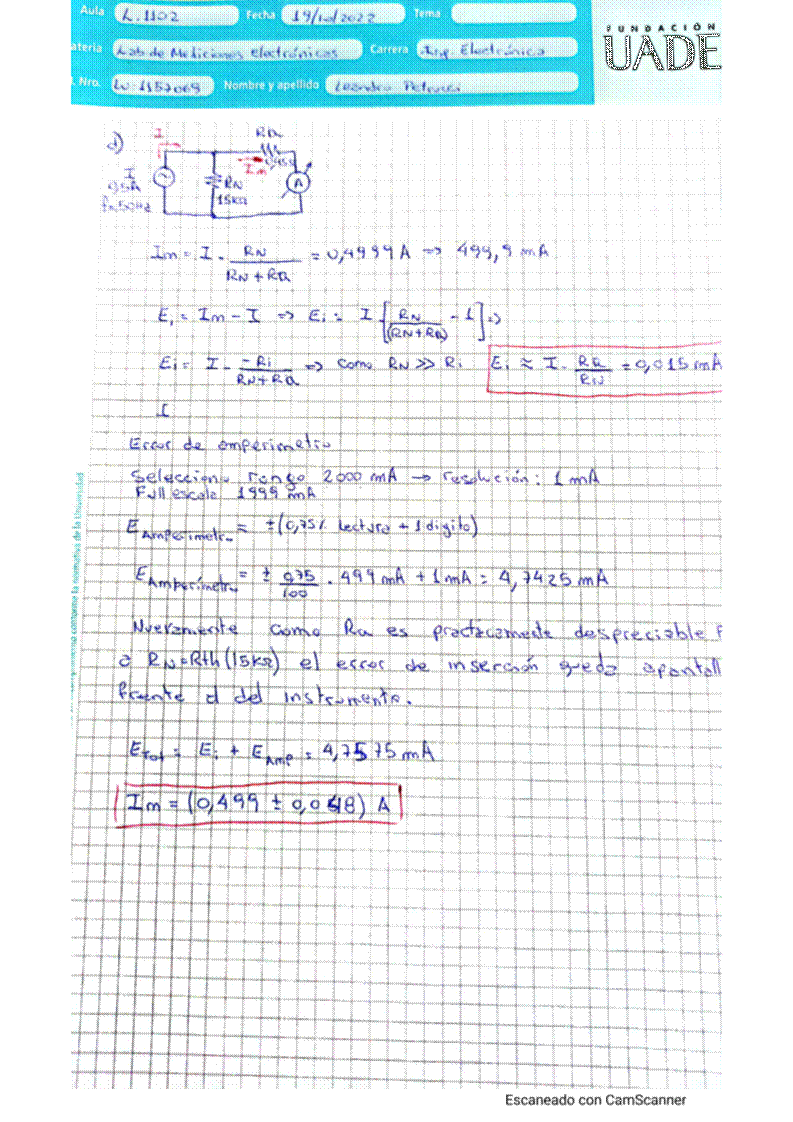 Aula L.1102 Fecha 19/10/2022 Tema
FUNDACIÓN
UADE
ateria Lab de Mediciones electrónicas Carrera Ing. Electrónica
Nro. LU 1157069 Nombre y apellido Leandro
d)
I
RA
0,45Ω
Im
I
0,5A
f=50Hz
RN
15KΩ
A
Im = I · RN / (RN + RA) = 0,4999 A => 499,9 mA
Ei = Im - I => Ei = I [RN / (RN + RA) - 1] =>
Ei = I · -Ri / (RN + RA) => como RN >> Ri Ei ≈ I · RA / RN = 0,015 mA
I
Error de amperimetro
Selecciono rango 2000 mA → resolución: 1 mA
Full escala 1999 mA
E Amperimetro = ±(0,75% lectura + 1 digito)
E Amperímetro = ± 0,75/100 · 499 mA + 1 mA = 4,7425 mA
Nuevamente como RA es practicamente despreciable f
a RN=Rth (15KΩ) el error de inserción queda apantall
frente al del instrumento.
ETot = Ei + EAmp = 4,7575 mA
Im = (0,499 ± 0,048) A
conforme la normativa de la Universidad
Escaneado con CamScanner